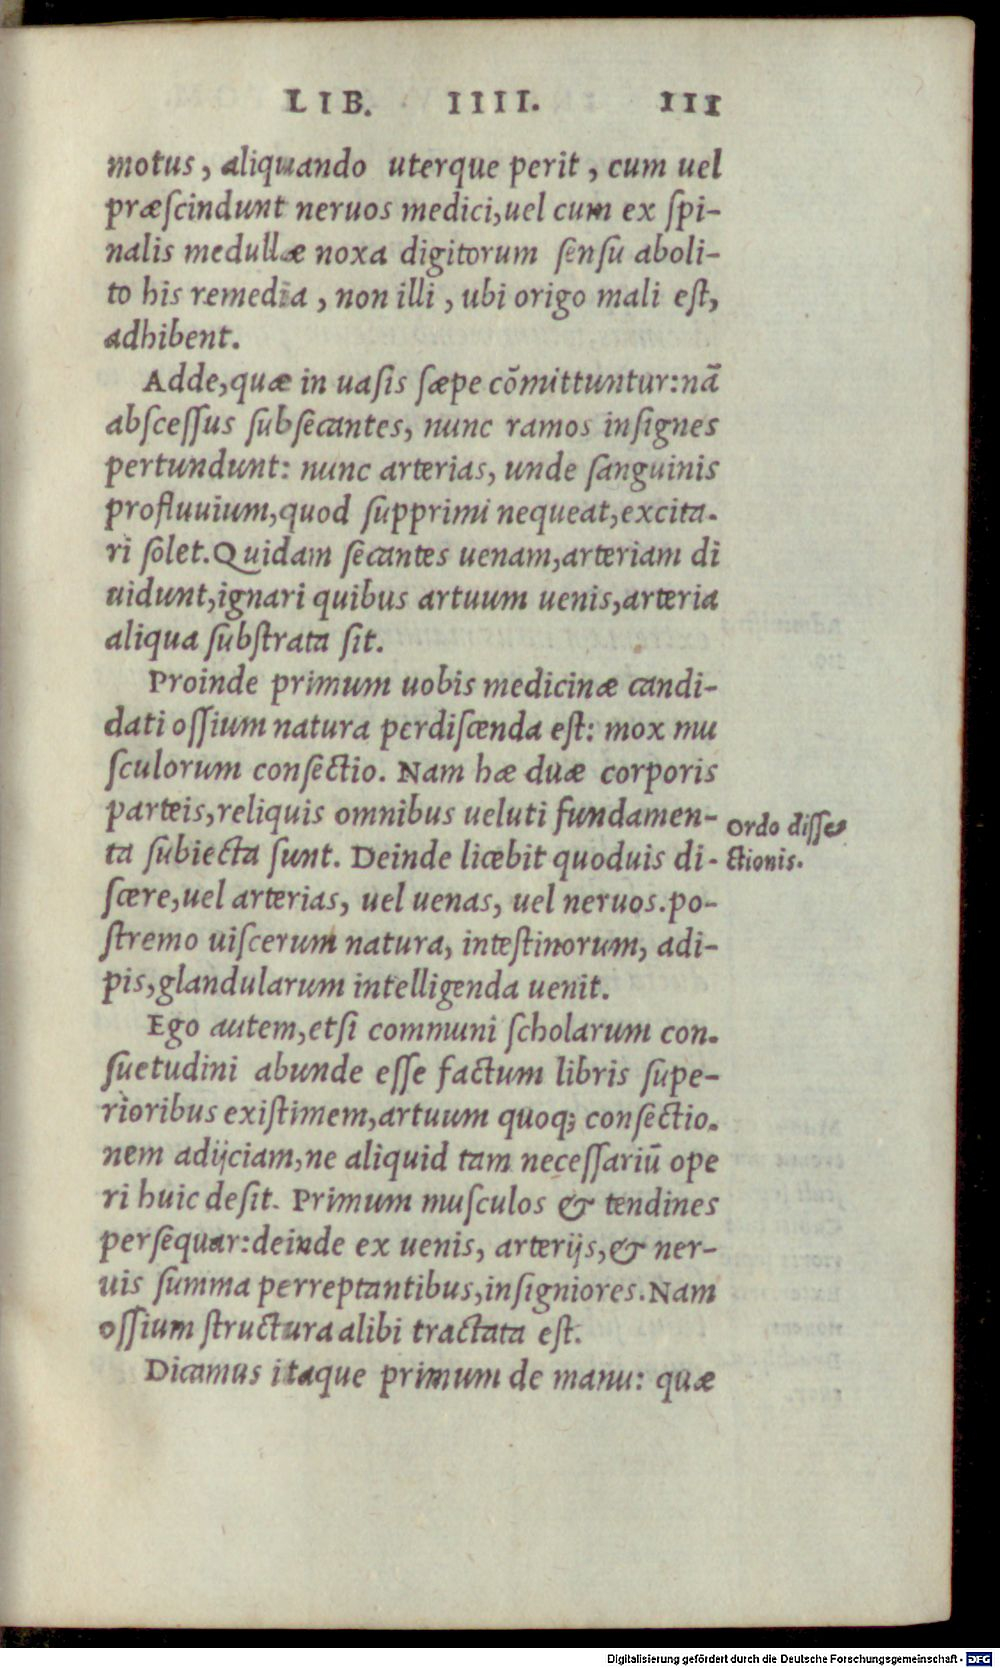 LIB. IIII. III
motus, aliquando uterque perit, cum uel
præſcindunt neruos medici, uel cum ex ſpi-
nalis medullæ noxa digitorum ſenſu aboli-
to his remedia, non illi, ubi origo mali eſt,
adhibent.
Adde, quæ in uaſis ſæpe cõmittuntur: nã
abſceſſus ſubſecantes, nunc ramos inſignes
pertundunt: nunc arterias, unde ſanguinis
profluuium, quod ſupprimi nequeat, excita-
ri ſolet. Quidam ſecantes uenam, arteriam di
uidunt, ignari quibus artuum uenis, arteria
aliqua ſubſtrata ſit.
Proinde primum uobis medicinæ candi-
dati oſſium natura perdiſcenda eſt: mox mu
ſculorum conſectio. Nam hæ duæ corporis
parteis, reliquis omnibus ueluti fundamen-
ta ſubiecta ſunt. Deinde licebit quoduis di-
ſcere, uel arterias, uel uenas, uel neruos. po-
ſtremo uiſcerum natura, inteſtinorum, adi-
pis, glandularum intelligenda uenit.
Ordo diſſe-
ctionis.
Ego autem, etſi communi ſcholarum con-
ſuetudini abunde eſſe factum libris ſupe-
rioribus exiſtimem, artuum quoq; conſectio-
nem adijciam, ne aliquid tam neceſſariũ ope
ri huic deſit. Primum muſculos & tendines
perſequar: deinde ex uenis, arterijs, & ner-
uis ſumma perreptantibus, inſigniores. Nam
oſſium ſtructura alibi tractata eſt.
Dicamus itaque primum de manu: quæ
Digitalisierung gefördert durch die Deutsche Forschungsgemeinschaft - DFG